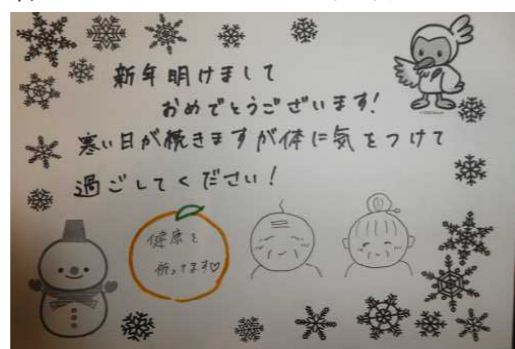 新年明けまして
おめでとうございます!
寒い日が続きますが体に気をつけて
過ごしてください!
健康を
祈ってます♡